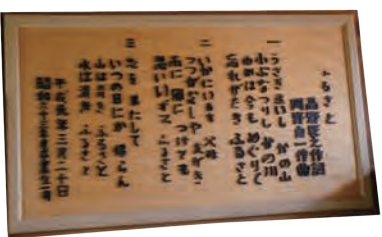 ふるさと
高野辰之作詞
岡野貞一作曲
一 うさぎ追いし かの山
小ぶなつりし かの川
ゆめは今も めぐりて
忘れがたき ふるさと
二 いかにいます 父母
つつがなしや 友がき
雨に 風に つけても
思いいずる ふるさと
三 志を 果たして
いつの日にか 帰らん
山は青き ふるさと
水は清き ふるさと
平成元年三月二十日